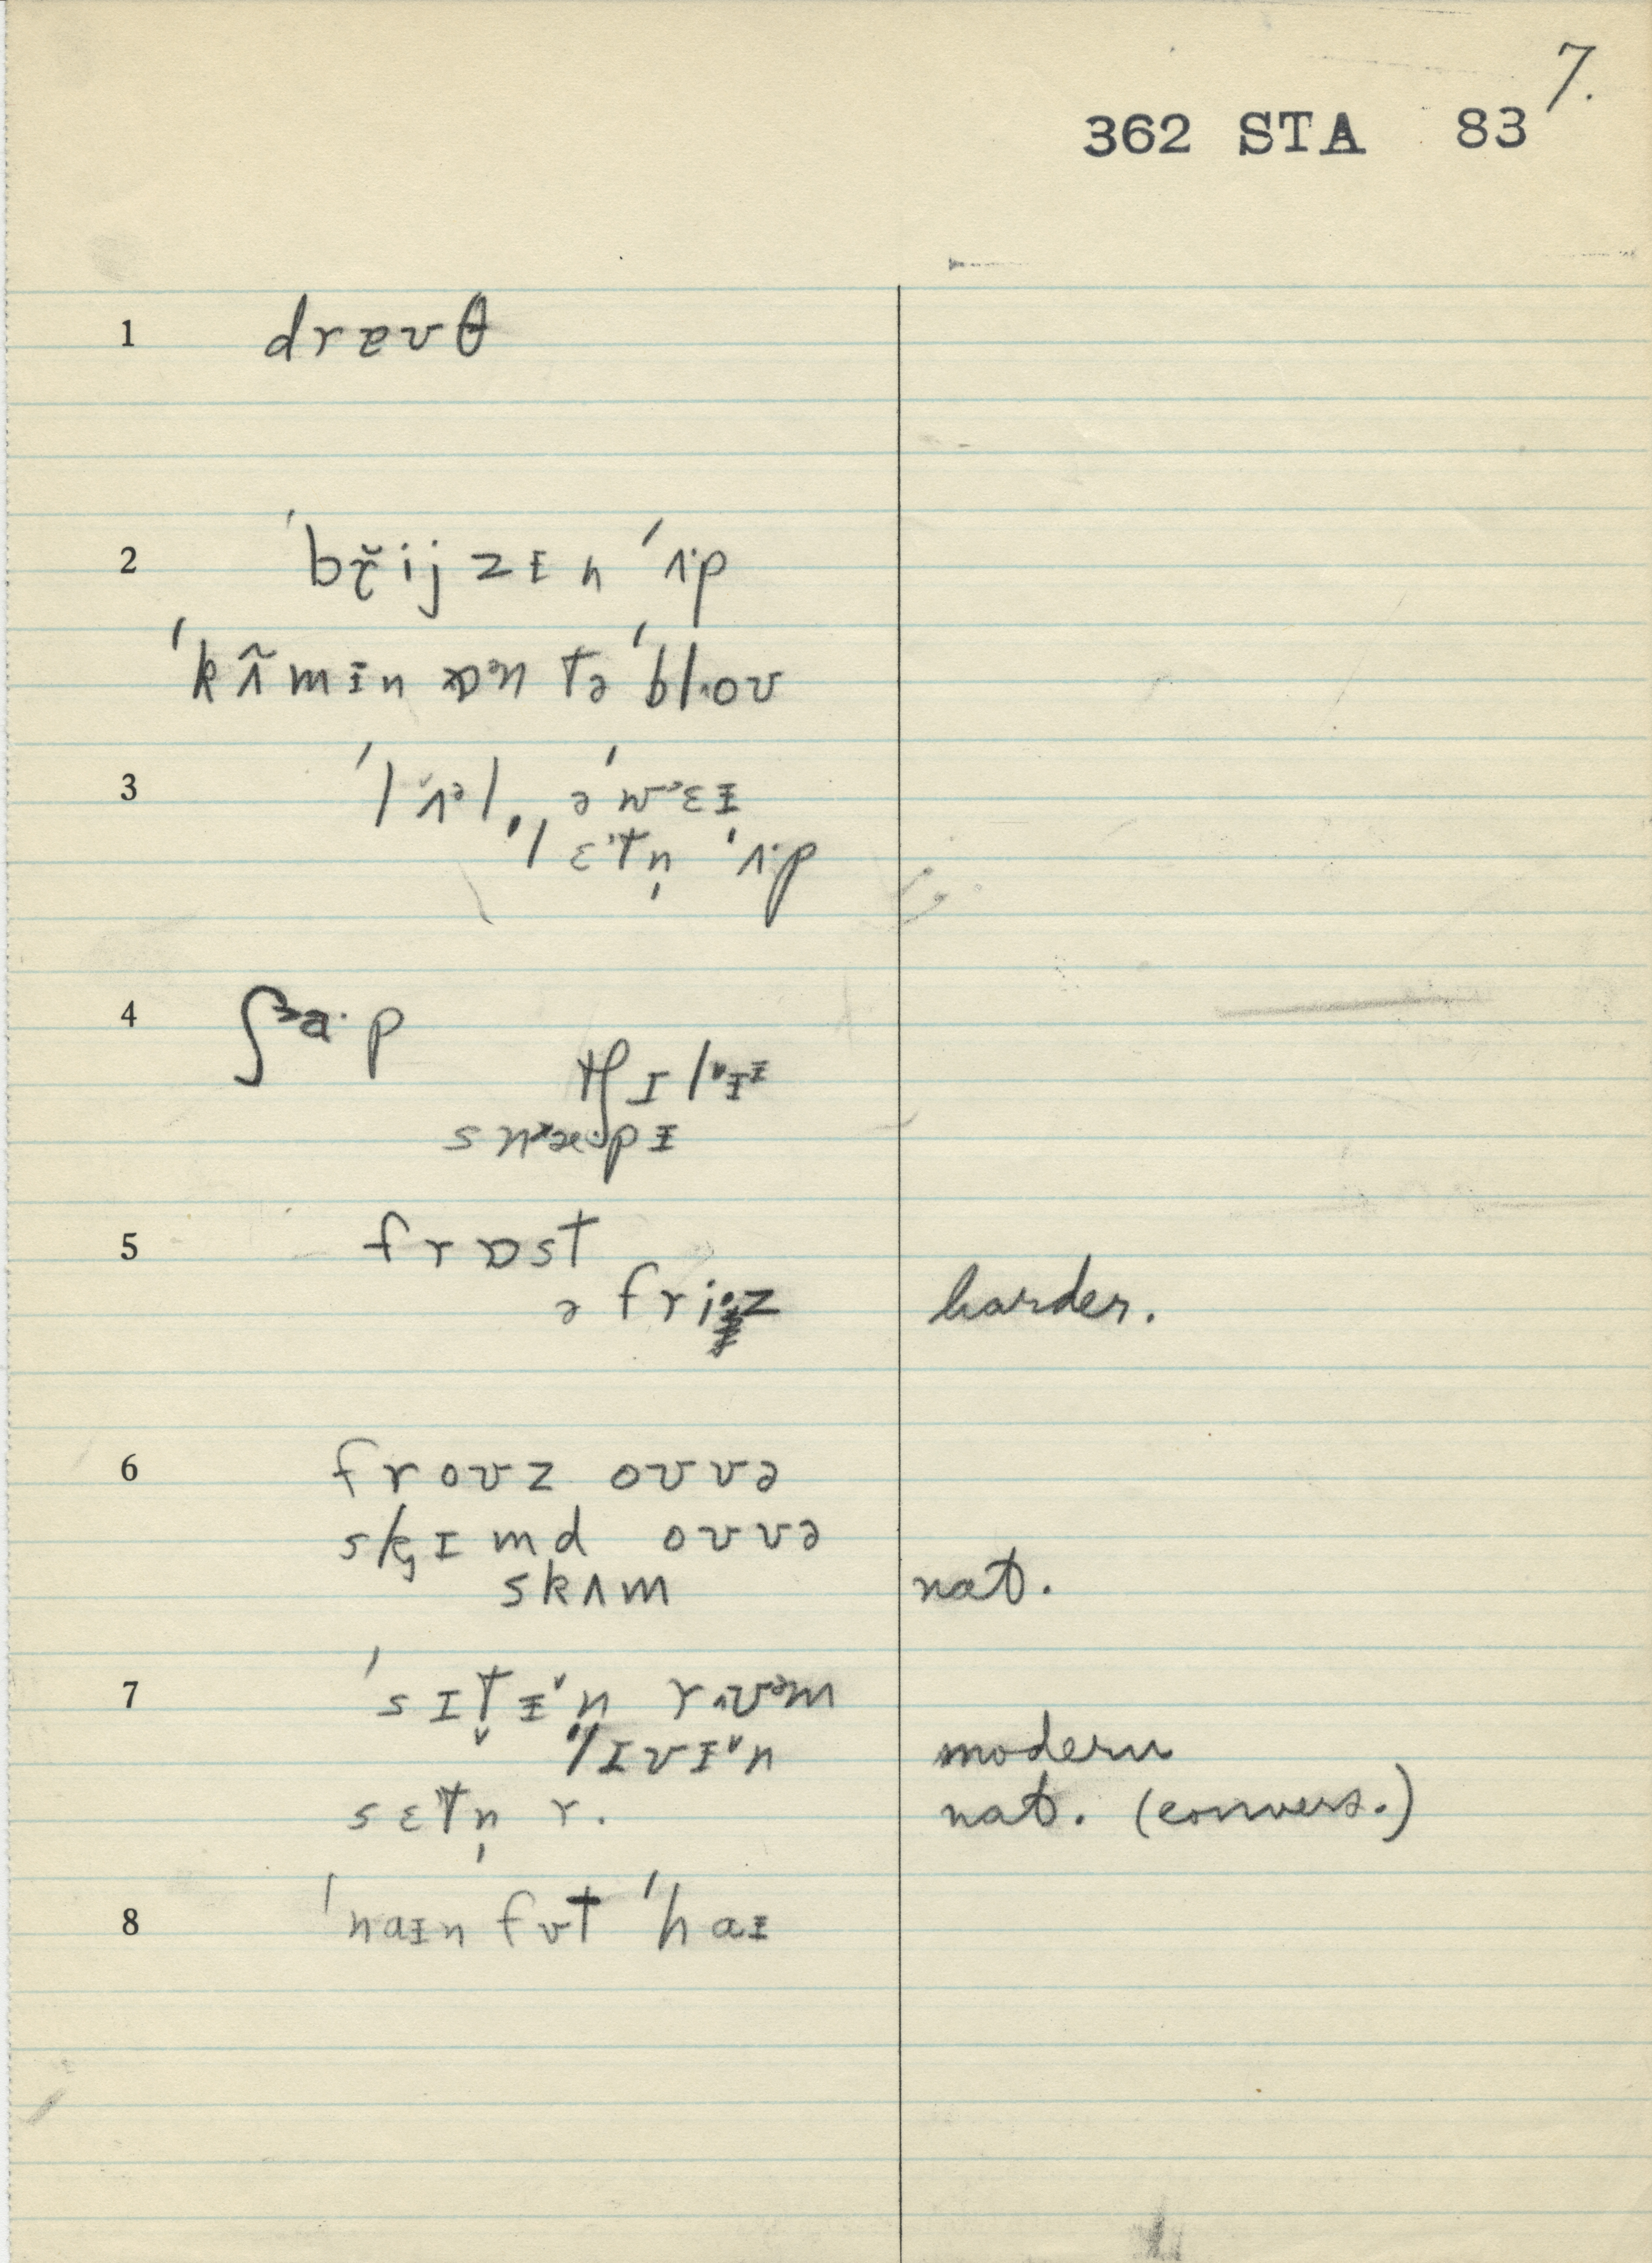 7.
362 STA 83
1 drɐʊθ
2 ˈbr̬ijzɪn ˈʌp
ˈkʌ̃mɪn ɒᵊn tə ˈblʌoʊ
3 ˈlʌ̆ᵊl, əˈwᵊɛɪ
ˈlɛtn̩ ˈʌp
4 ʃᵊa·p
5 frɒst
ə friz harder.
6 froʊz oʊvə
skɪmd oʊvə
skʌm nat.
7 ˈsɪt̬ɪn rʌʊᵊm
ˈlɪvɪn modern
sɛtn̩ r. nat. (convers.)
8 ˈnaɪn fʊt ˈhaɪ